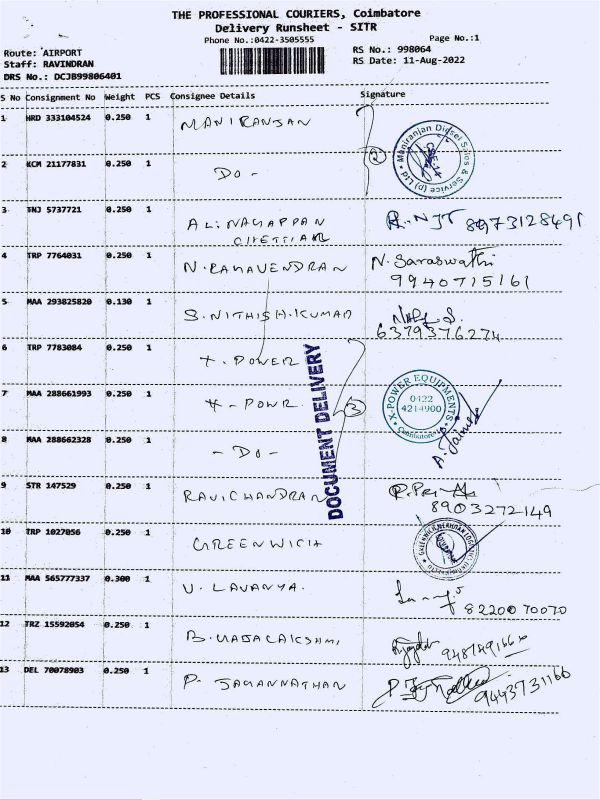 THE PROFESSIONAL COURIERS, Coimbatore
Delivery Runsheet - SITR
Phone No.:0422-3505555 Page No.:1
Route: AIRPORT RS No.: 998064
Staff: RAVINDRAN RS Date: 11-Aug-2022
DRS No.: DCJB99806401
S No Consignment No Weight PCS Consignee Details Signature
1 HRD 333104524 0.250 1 MANIRANJAN
2 Maniranjan Diesel Sales & Service (p) Ltd
2 KCM 21177831 0.250 1 DO-
3 TNJ 5737721 0.250 1 AL. NAGAPPAN 8973128491
CHETTIAR
4 TRP 7764031 0.250 1 N. RAGAVENDRAN N. Saraswathi
9940715161
5 MAA 293825820 0.130 1 S. NITHISH.KUMAR
6379376274
6 TRP 7783084 0.250 1 X. POWER
DOCUMENT DELIVERY
7 MAA 288661993 0.250 1 X-POWR 3 X-POWER EQUIPMENTS
0422
4214900
Coimbatore
8 MAA 288662328 0.250 1 -DO-
9 STR 147529 0.250 1 RAVICHANDRAN
8903272149
10 TRP 1027056 0.250 1 GREENWICH
11 MAA 565777337 0.300 1 V. LAVANYA.
8220070070
12 TRZ 15592054 0.250 1 B. RAJALAKSHMI
13 DEL 70078903 0.250 1 P. JAGANNATHAN 9443731166